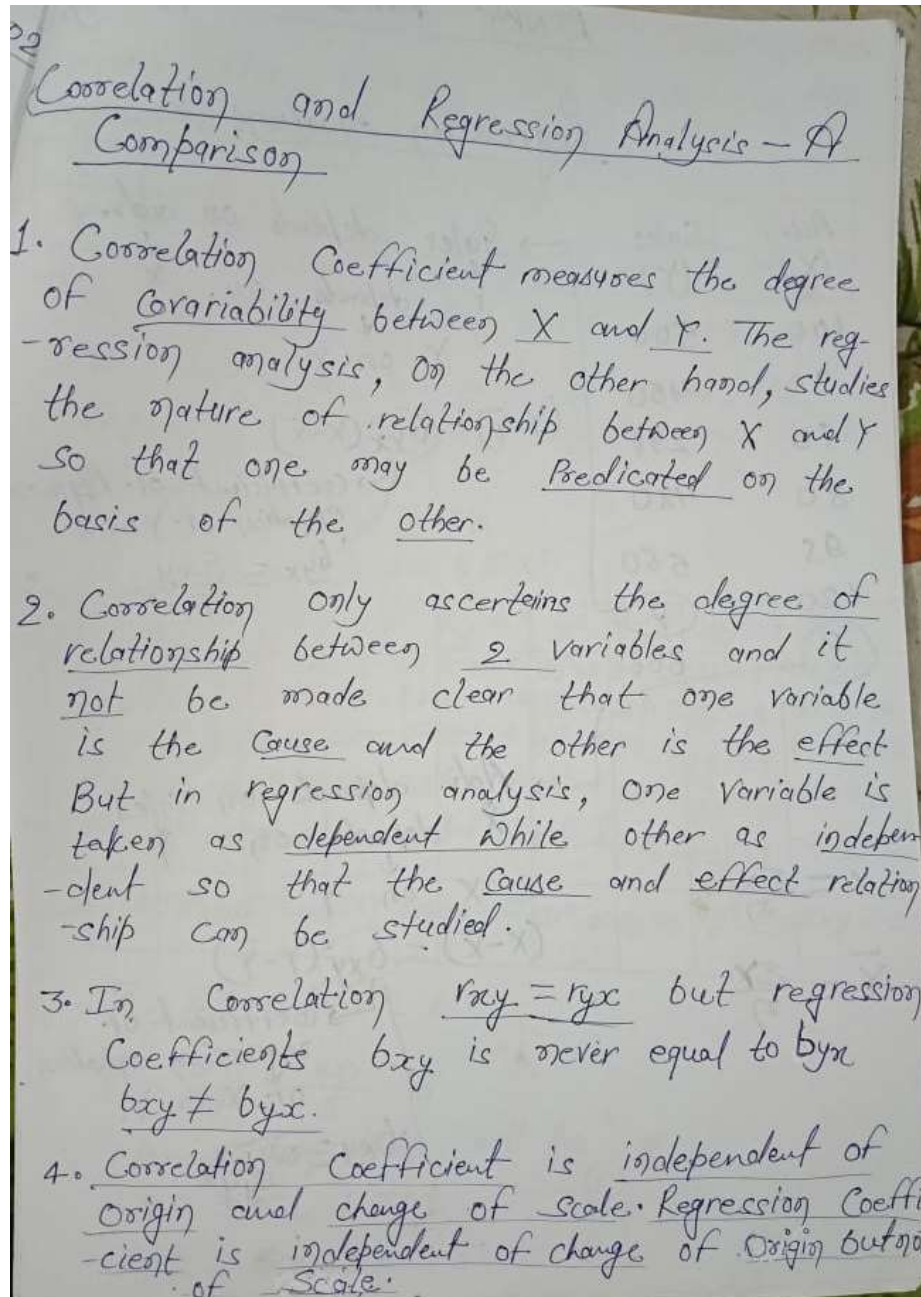 22
Correlation and Regression Analysis - A
Comparison
1. Correlation Coefficient measures the degree
of Covariability between X and Y. The reg-
-ression analysis, on the other hand, studies
the nature of relationship between X and Y
so that one may be Predicated on the
basis of the other.
2. Correlation only ascerteins the degree of
relationship between 2 variables and it
not be made clear that one variable
is the Cause and the other is the effect
But in regression analysis, one Variable is
taken as dependent While other as indepen
-dent so that the Cause and effect relation
-ship can be studied.
3. In Correlation rxy = ryx but regression
Coefficients bxy is never equal to byx
bxy ≠ byx.
4. Correlation Coefficient is independent of
Origin and change of scale. Regression Coeffi
-cient is independent of change of Origin but no
of Scale.